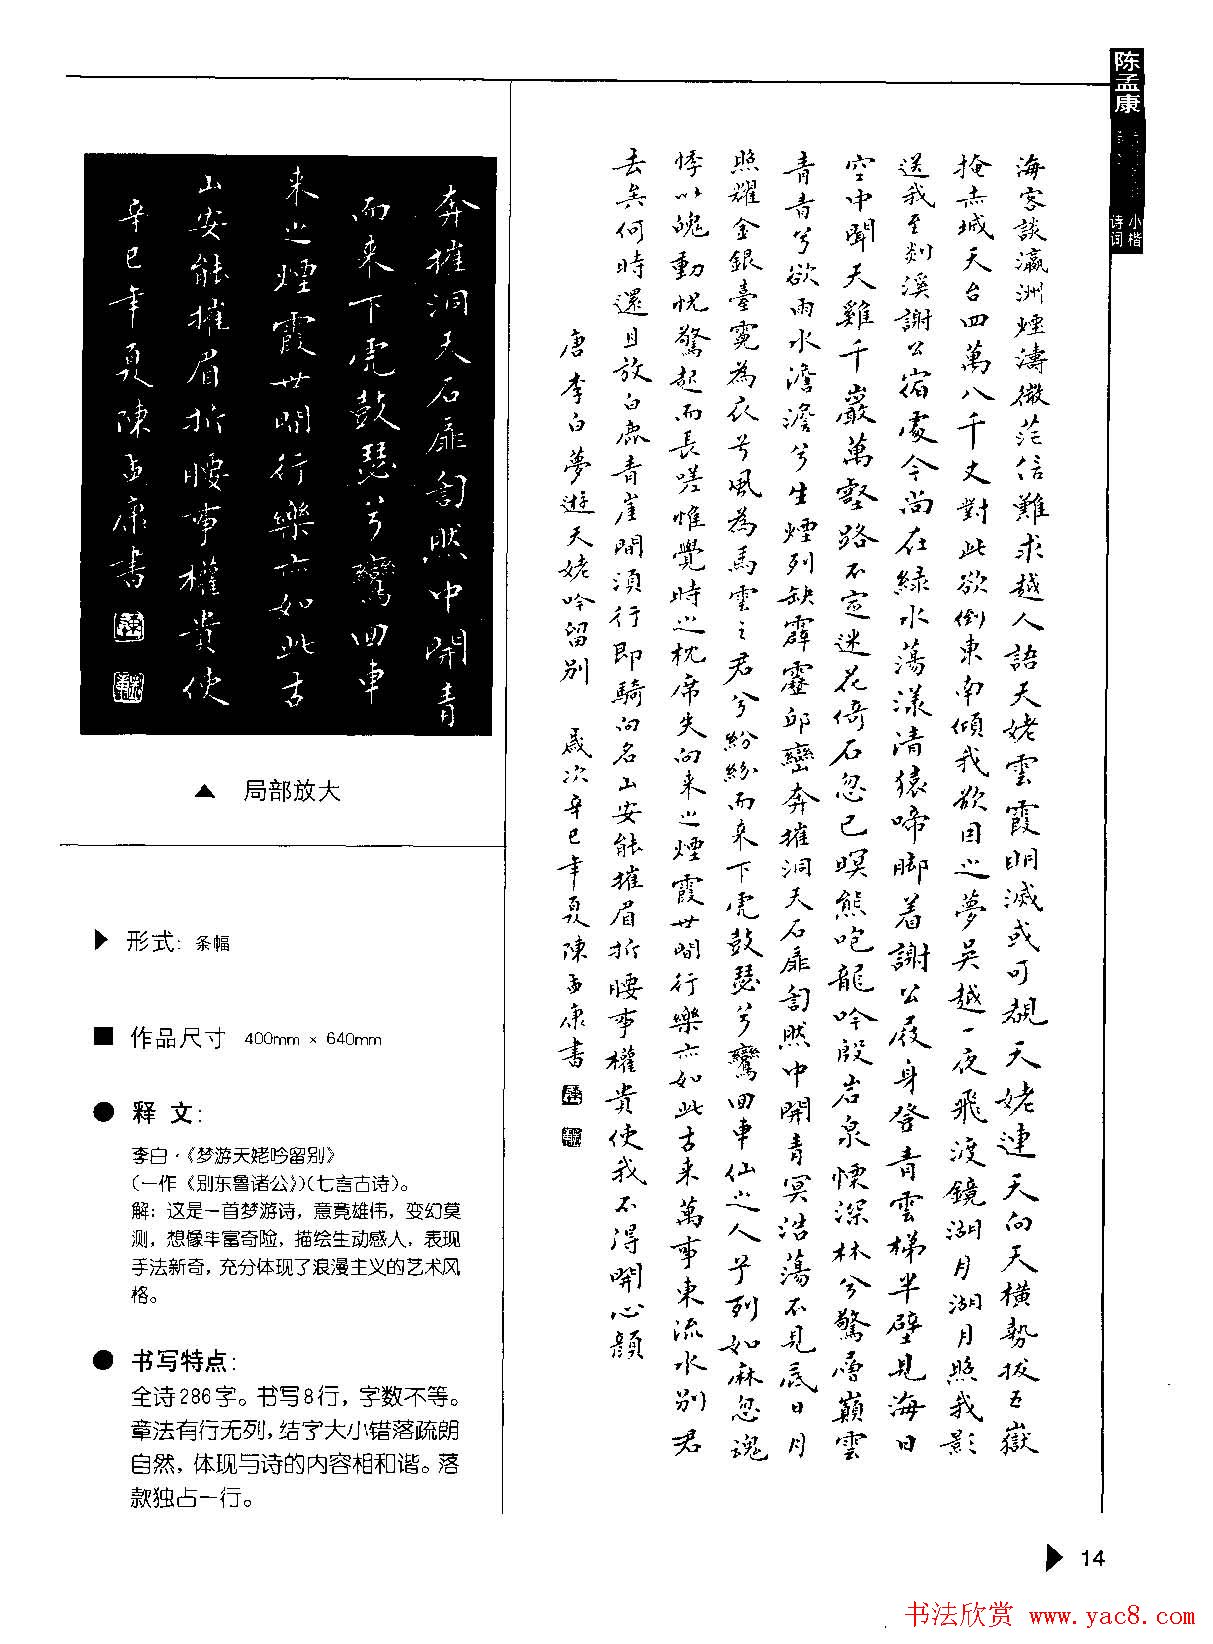 陈孟康
小楷
诗词
海客談瀛洲煙濤微茫信難求越人語天姥雲霞明滅或可覩天姥連天向天橫勢拔五嶽
掩赤城天台四萬八千丈對此欲倒東南傾我欲因之夢吳越一夜飛渡鏡湖月湖月照我影
送我至剡溪謝公宿處今尚在綠水蕩漾清猿啼脚着謝公屐身登青雲梯半壁見海日
空中聞天雞千巖萬壑路不定迷花倚石忽已暝熊咆龍吟殷岩泉慄深林兮驚層巔雲
青青兮欲雨水澹澹兮生煙列缺霹靂邱巒奔摧洞天石扉訇然中開青冥浩蕩不見底日月
照耀金銀臺霓為衣兮風為馬雲之君兮紛紛而來下虎鼓瑟兮鸞回車仙之人兮列如麻忽魂
悸以魄動怳驚起而長嗟惟覺時之枕席失向来之煙霞世間行樂亦如此古来萬事東流水別君
去矣何時還且放白鹿青崖間須行即騎向名山安能摧眉折腰事權貴使我不得開心顏
唐李白夢遊天姥吟留別 歲次辛巳年夏陳孟康書
奔摧洞天石扉訇然中開青
而来下虎鼓瑟兮鸞回車
来之煙霞世間行樂亦如此古
山安能摧眉折腰事權貴使
辛巳年夏陳孟康書
▲ 局部放大
形式: 条幅
作品尺寸 400mm × 640mm
释 文:
李白·《梦游天姥吟留别》
(一作《别东鲁诸公》)(七言古诗)。
解: 这是一首梦游诗, 意竟雄伟, 变幻莫
测, 想像丰富奇险, 描绘生动感人, 表现
手法新奇, 充分体现了浪漫主义的艺术风
格。
书写特点:
全诗286字。书写8行, 字数不等。
章法有行无列, 结字大小错落疏朗
自然, 体现与诗的内容相和谐。落
款独占一行。
14
书法欣赏 www.yac8.com